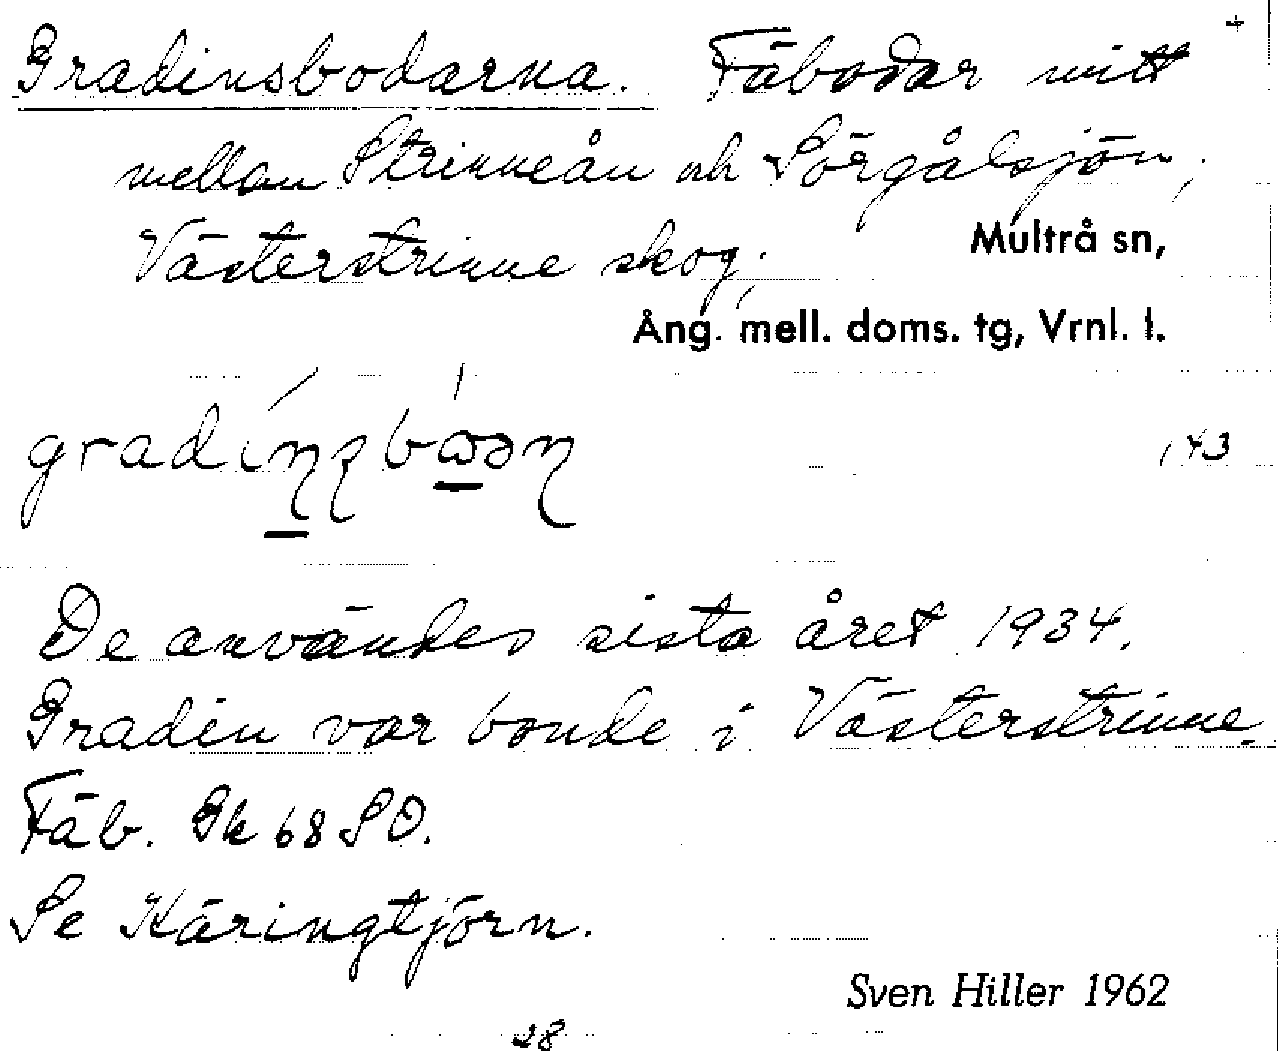 +
Gradinsbodarna. Fäbodar mitt
mellan Strinneån och Sörgålsjön,
Västerstrinne skog,
Multrå sn,
Ång. mell. doms. tg, Vrnl. l.
143
De användes sista året 1934.
Gradin var bonde i Västerstrinne.
Fäb. Gk 68 SO.
Se Käringtjörn.
Sven Hiller 1962
28